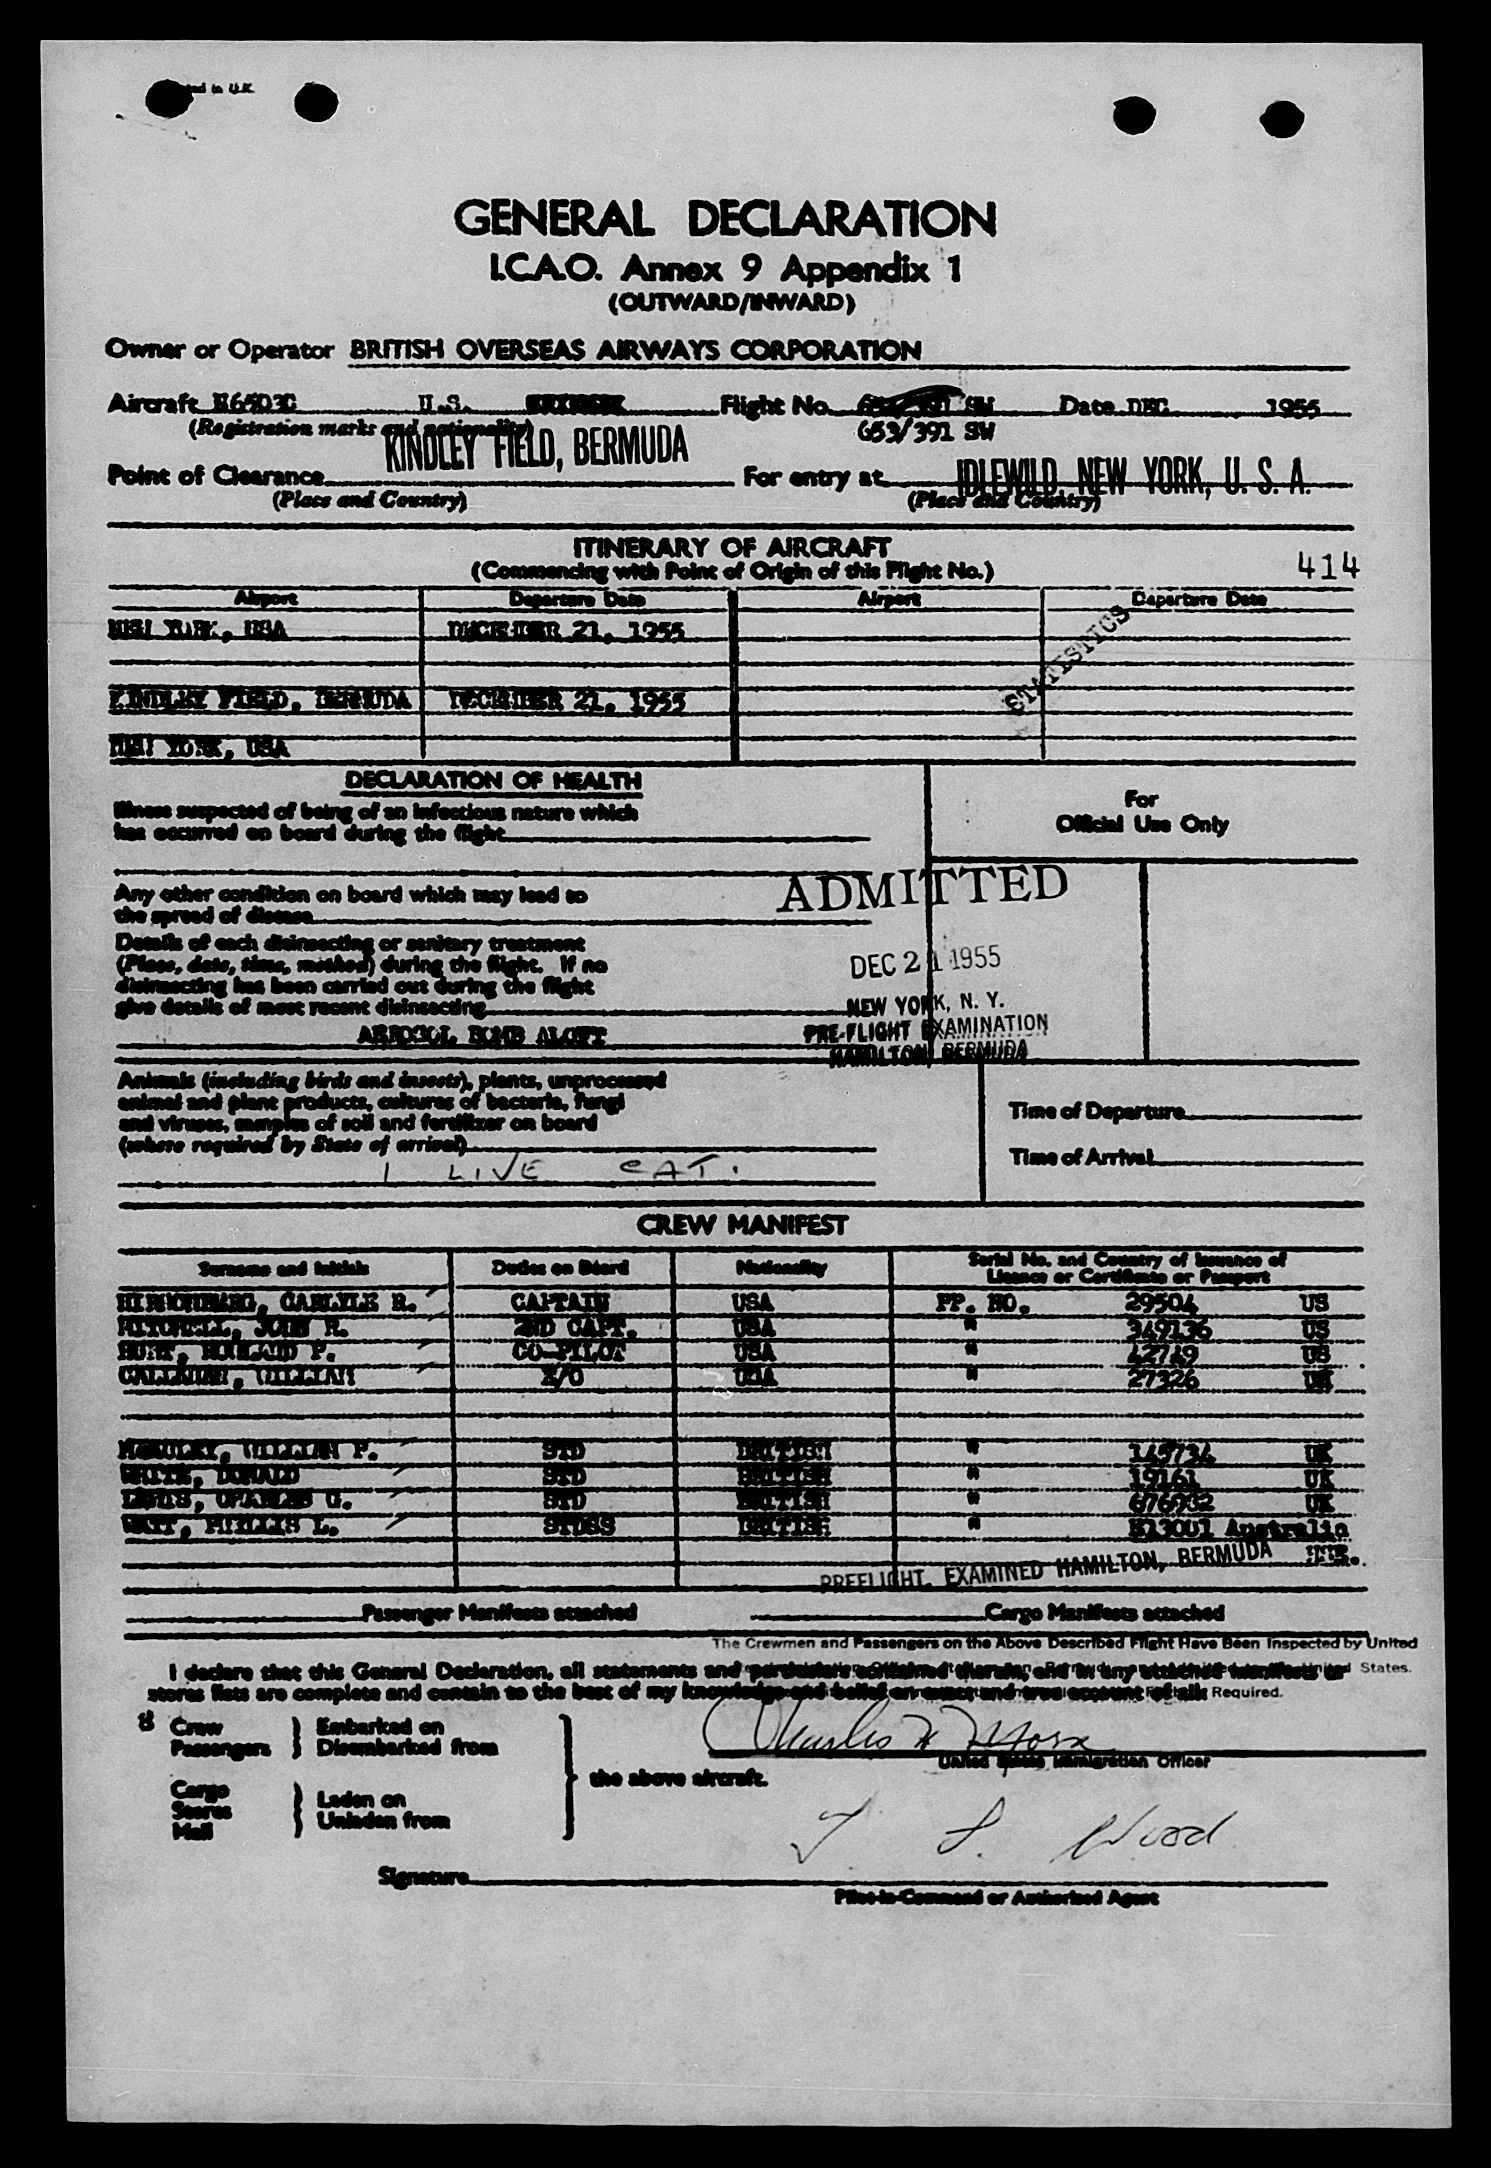 in U.K.
GENERAL DECLARATION
I.C.A.O. Annex 9 Appendix 1
(OUTWARD/INWARD)
Owner or Operator BRITISH OVERSEAS AIRWAYS CORPORATION
Aircraft N6503C U.S. Flight No. 653/391 SW Date DEC 1955
(Registration marks and nationality) 653/391 SW
KINDLEY FIELD, BERMUDA
Point of Clearance For entry at IDLEWILD, NEW YORK, U. S. A.
(Place and Country) (Place and Country)
ITINERARY OF AIRCRAFT
(Commencing with Point of Origin of this Flight No.) 414
Airport Departure Date Airport Departure Date
NEW YORK, USA DECEMBER 21, 1955
STATISTICS
KINDLEY FIELD, BERMUDA DECEMBER 21, 1955
NEW YORK, USA
DECLARATION OF HEALTH
Illness suspected of being of an infectious nature which
has occurred on board during the flight
For
Official Use Only
Any other condition on board which may lead to
the spread of disease
ADMITTED
Details of each disinsecting or sanitary treatment
(Place, date, time, method) during the flight. If no
disinsecting has been carried out during the flight
give details of most recent disinsecting
AEROSOL BOMB ALOFT
DEC 21 1955
NEW YORK, N. Y.
PRE-FLIGHT EXAMINATION
HAMILTON, BERMUDA
Animals (including birds and insects), plants, unprocessed
animal and plant products, cultures of bacteria, fungi
and viruses, samples of soil and fertilizer on board
(where required by State of arrival)
1 LIVE CAT.
Time of Departure
Time of Arrival
CREW MANIFEST
Surname and Initials Duties on Board Nationality Serial No. and Country of Issuance of
Licence or Certificate or Passport
CARLYLE R. CAPTAIN USA PP. NO. 29504 US
MITCHELL, JOHN R. 2ND CAPT. USA " 349136 US
HURT, P. CO-PILOT USA " 42749 US
CALLAHAN, WILLIAM E/O USA " 27326 US
WILLIAM P. STD BRITISH " 145734 UK
WHITE, DONALD STD BRITISH " 19161 UK
LEWIS, CHARLES G. STD BRITISH " 676932 UK
WATT, PHYLLIS L. STDSS BRITISH " Australia
PREFLIGHT. EXAMINED HAMILTON, BERMUDA
Passenger Manifests attached Cargo Manifests attached
The Crewmen and Passengers on the Above Described Flight Have Been Inspected by United
States.
I declare that this General Declaration, all statements and particulars contained therein, and in any attached manifests or
stores lists are complete and contain to the best of my knowledge and belief an exact and true account of all: Required.
8 Crew
Passengers
Embarked on
Disembarked from
Cargo
Stores
Mail
Laden on
Unladen from
the above aircraft.
United States Immigration Officer
Wood
Signature
Pilot-in-Command or Authorised Agent